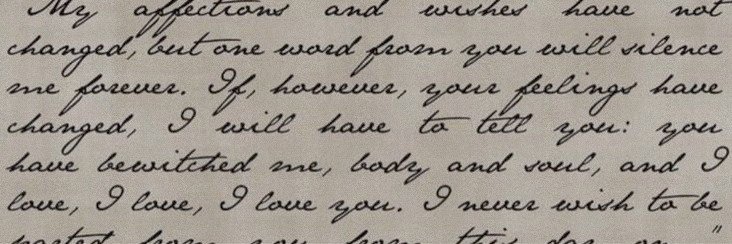 My affections and wishes have not
changed, but one word from you will silence
me forever. If, however, your feelings have
changed, I will have to tell you: you
have bewitched me, body and soul, and I
love, I love, I love you. I never wish to be
parted from you from this day on."